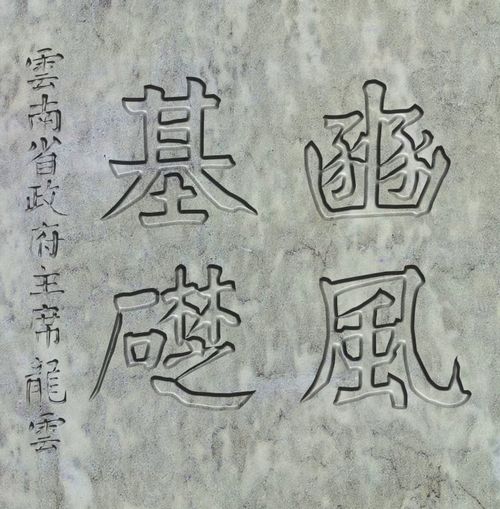 豳風
基礎
雲南省政府主席龍雲